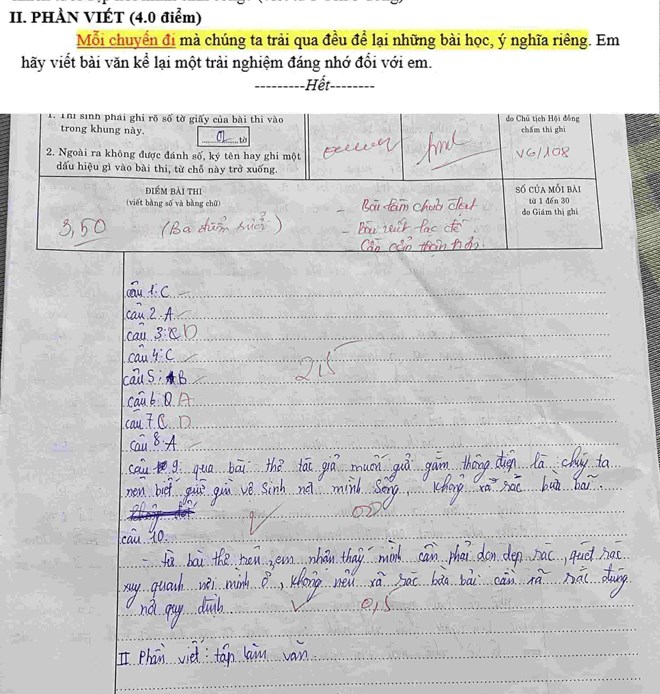 II. PHẦN VIẾT (4.0 điểm)
Mỗi chuyến đi mà chúng ta trải qua đều để lại những bài học, ý nghĩa riêng. Em
hãy viết bài văn kể lại một trải nghiệm đáng nhớ đối với em.
---------Hết--------
1. Thí sinh phải ghi rõ số tờ giấy của bài thi vào
trong khung này.
01 tờ
2. Ngoài ra không được đánh số, ký tên hay ghi một
dấu hiệu gì vào bài thi, từ chỗ này trở xuống.
do Chủ tịch Hội đồng
chấm thi ghi
VG/108
ĐIỂM BÀI THI
(viết bằng số và bằng chữ)
3,50 (Ba điểm rưỡi)
- Bài làm chưa đạt
- Bài viết lạc đề
Cần cẩn thận hơn.
SỐ CỦA MỖI BÀI
từ 1 đến 30
do Giám thị ghi
câu 1: C
câu 2. A
câu 3: C D
câu 4: C
câu 5: B
câu 6: D A
câu 7 C D
câu 8. A
2,5
câu 9: qua bài thơ tác giả muốn gửi gắm thông điệp là chúng ta
nên biết giữ gìn vệ sinh nơi mình sống, không xả rác bừa bãi.
câu 10.
- Từ bài thơ trên, em nhận thấy mình cần phải dọn dẹp rác, quét rác
xung quanh nơi mình ở, không nên xả rác bừa bãi cần xả rác đúng
nơi quy định
0,5
II Phần viết: tập làm văn